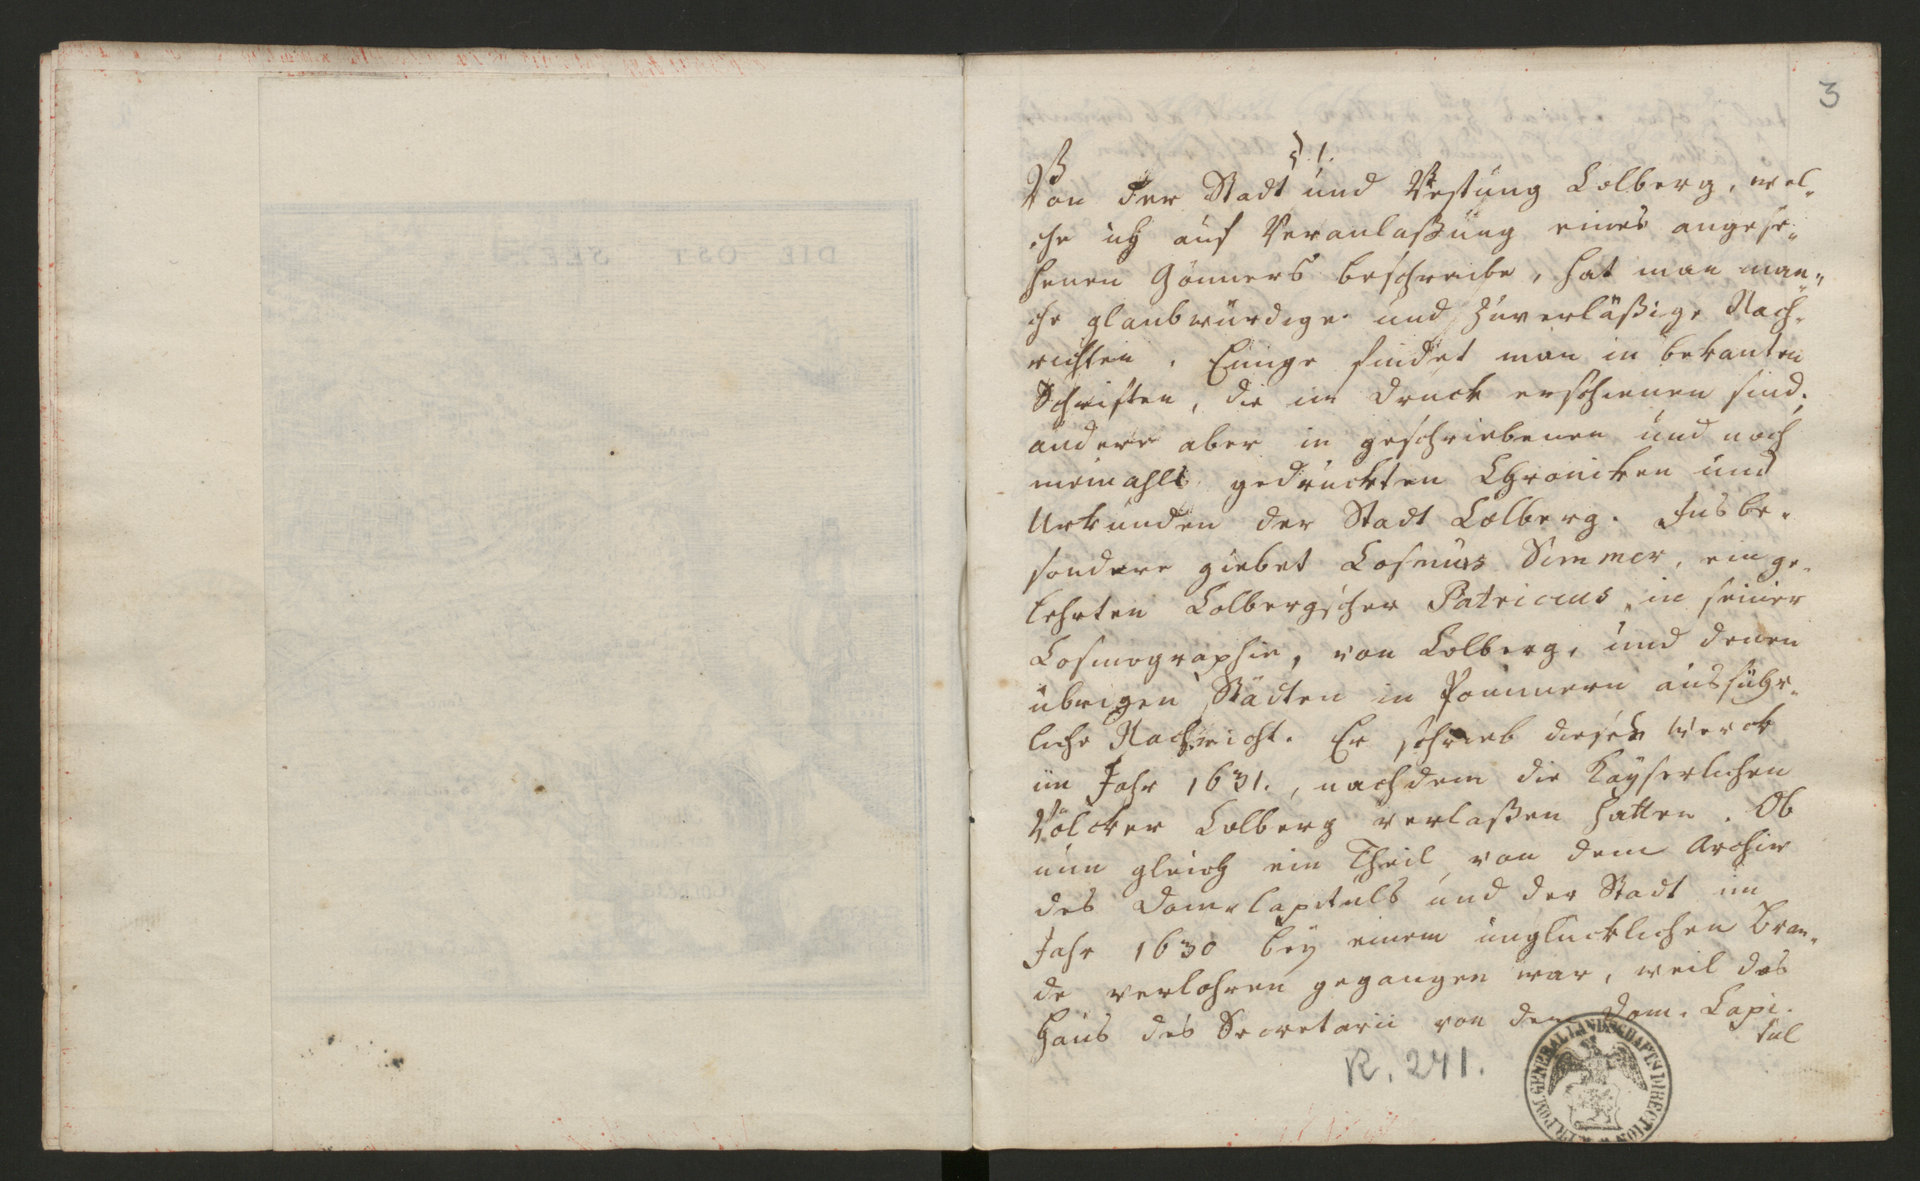 3
§. 1.
Von der Stadt und Vestung Colberg, wel-
che ich auf Veranlaßung eines angese-
henen Gönners beschreibe, hat man man-
che glaubwürdige und zuverläßige Nach-
richten. Einige findet man in bekanten
Schriften, die im Druck erschienen sind;
andere aber in geschriebenen und noch
niemahls gedruckten Chronicken und
Urkunden der Stadt Colberg. Insbe-
sondere giebet Cosmus Simmer, ein ge-
lehrten Colbergscher Patricius, in seiner
Cosmographie, von Colberg, und denen
übrigen Städten in Pommern ausführ-
liche Nachricht. Er schrieb dieses Werck
im Jahr 1631., nachdem die Kayserlichen
Völcker Colberg verlaßen hatten. Ob
nun gleich ein Theil von dem Archiv
des Dom-Capituls und der Stadt im
Jahr 1630 bey einem unglücklichen Bran-
de verlohren gegangen war, weil das
Haus des Secretarii von dem Dom-Capi-
tul
R. 241.
GENERAL LANDSCHAFTS DIRECTION
DIE OST SEE